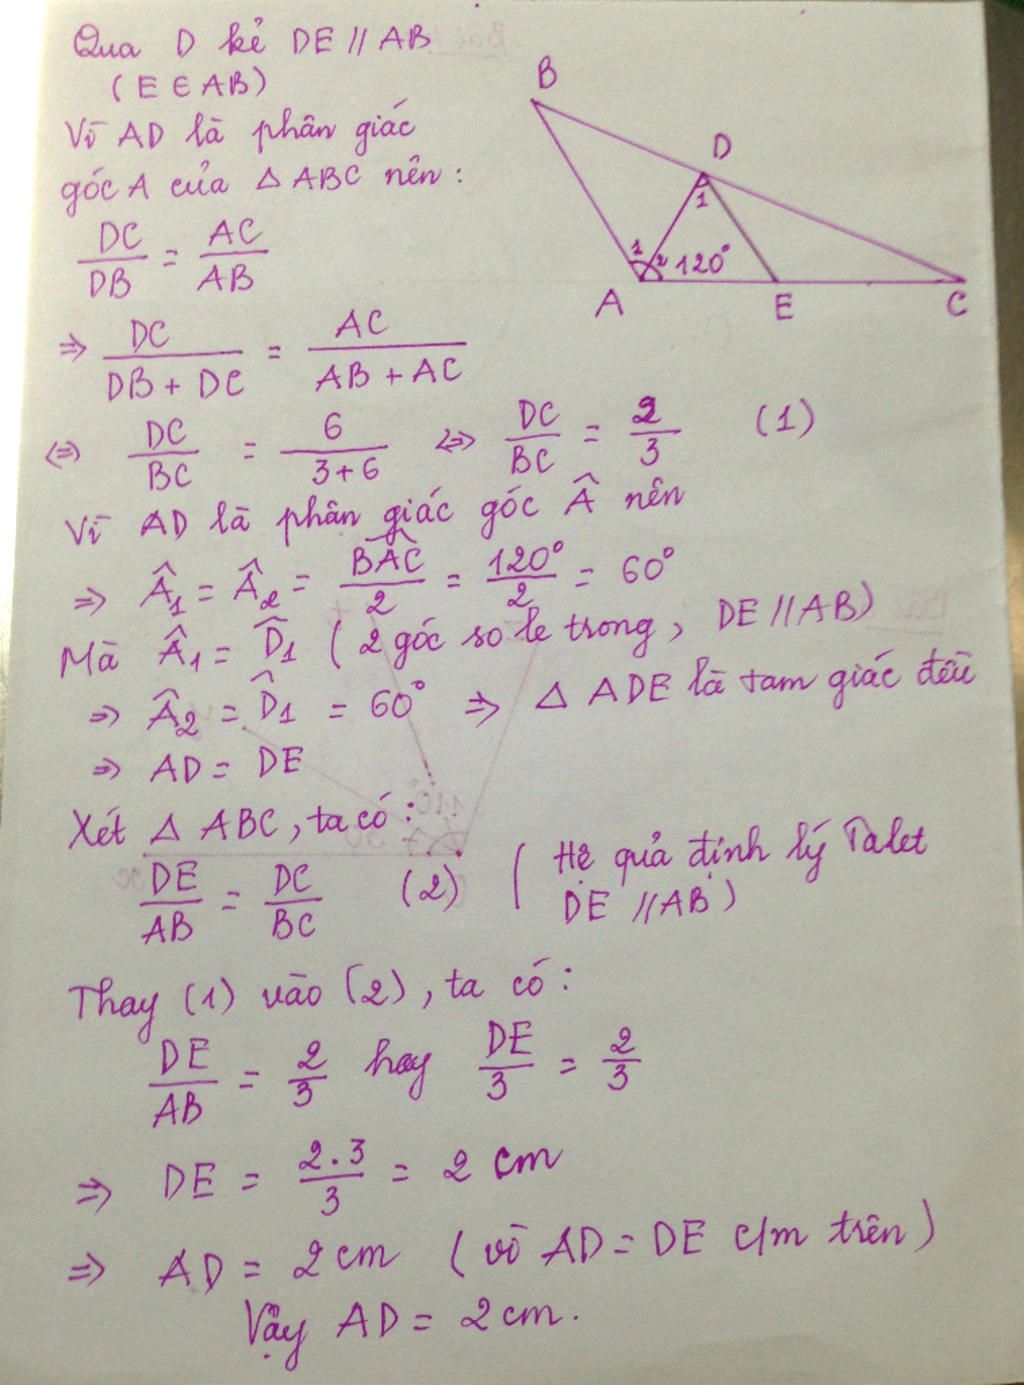 Qua D kẻ DE // AB
( E ∈ AB )
Vì AD là phân giác
góc A của △ ABC nên :
DC/DB = AC/AB
⇒ DC/(DB + DC) = AC/(AB + AC)
⇔ DC/BC = 6/(3+6) ⇔ DC/BC = 2/3 (1)
Vì AD là phân giác góc Â nên
⇒ Â1 = Â2 = BÂC/2 = 120°/2 = 60°
Mà Â1 = D̂1 ( 2 góc so le trong, DE // AB)
⇒ Â2 = D̂1 = 60° ⇒ △ ADE là tam giác đều
⇒ AD = DE
Xét △ ABC, ta có :
DE/AB = DC/BC (2) ( Hệ quả định lý Talet
DE // AB )
Thay (1) vào (2), ta có :
DE/AB = 2/3 hay DE/3 = 2/3
⇒ DE = 2.3/3 = 2 cm
⇒ AD = 2 cm ( vì AD = DE c/m trên )
Vậy AD = 2 cm.
B
D
1
1
2
120°
A
E
C